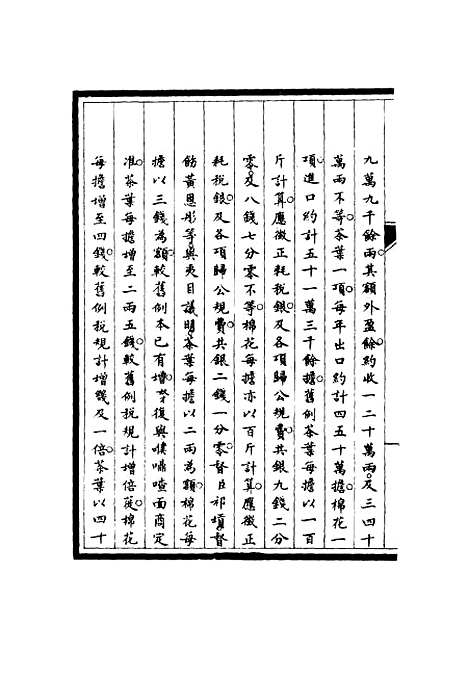 九萬九千餘兩其額外盈餘約收一二十萬兩及三四十
萬兩不等茶葉一項每年出口約計四五十萬擔棉花一
項進口約計五十一萬三千餘擔舊例茶葉每擔以一百
斤計算應徵正耗稅銀及各項歸公規費共銀九錢二分
零及八錢七分零不等棉花每擔亦以百斤計算應徵正
耗稅銀及各項歸公規費共銀二錢一分零督臣祁𡎴督
飭黃恩彤等與夷目議明茶葉每擔以二兩為額棉花每
擔以三錢為額較舊例本已有增茲復與㗆嚉喳面商定
准茶葉每擔增至二兩五錢較舊例稅規計增倍蓰棉花
每擔增至四錢較舊例稅規計增幾及一倍茶葉以四十